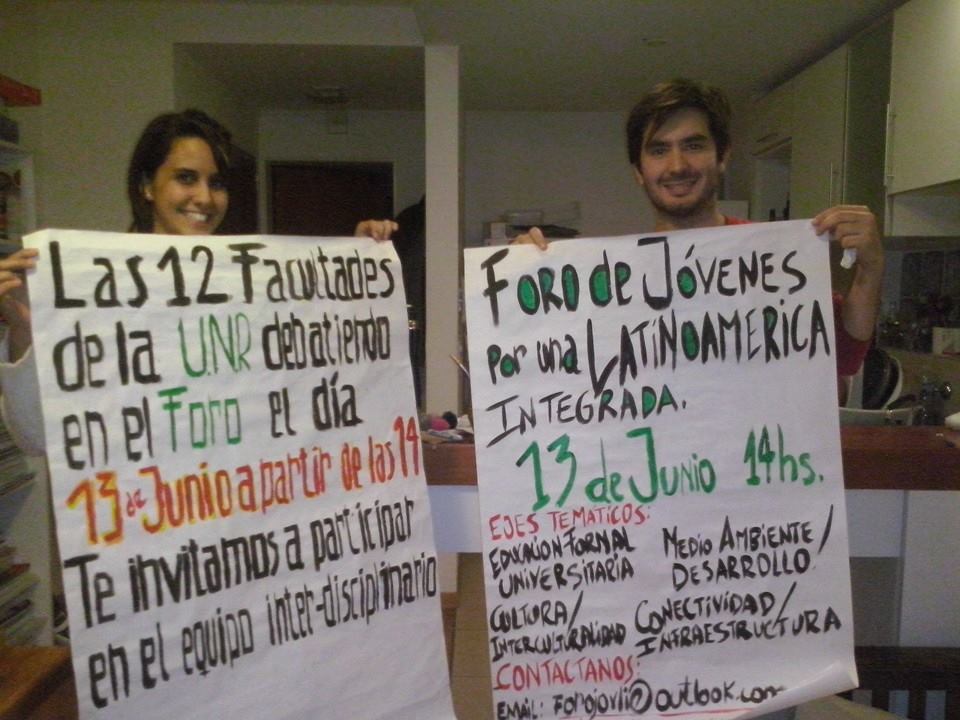 Las 12 Facultades
de la UNR debatiendo
en el Foro el día
13 de Junio a partir de las 14
Te invitamos a participar
en el equipo inter-disciplinario
FORO de JÓVENES
por una LATINOAMERICA
INTEGRADA.
13 de Junio 14hs.
EJES TEMATICOS:
EDUCACION FORMAL
UNIVERSITARIA
MEDIO AMBIENTE/
DESARROLLO
CULTURA/
INTERCULTURALIDAD
CONECTIVIDAD/
INFRAESTRUCTURA
CONTACTANOS:
EMAIL: forojovli@outlook.com